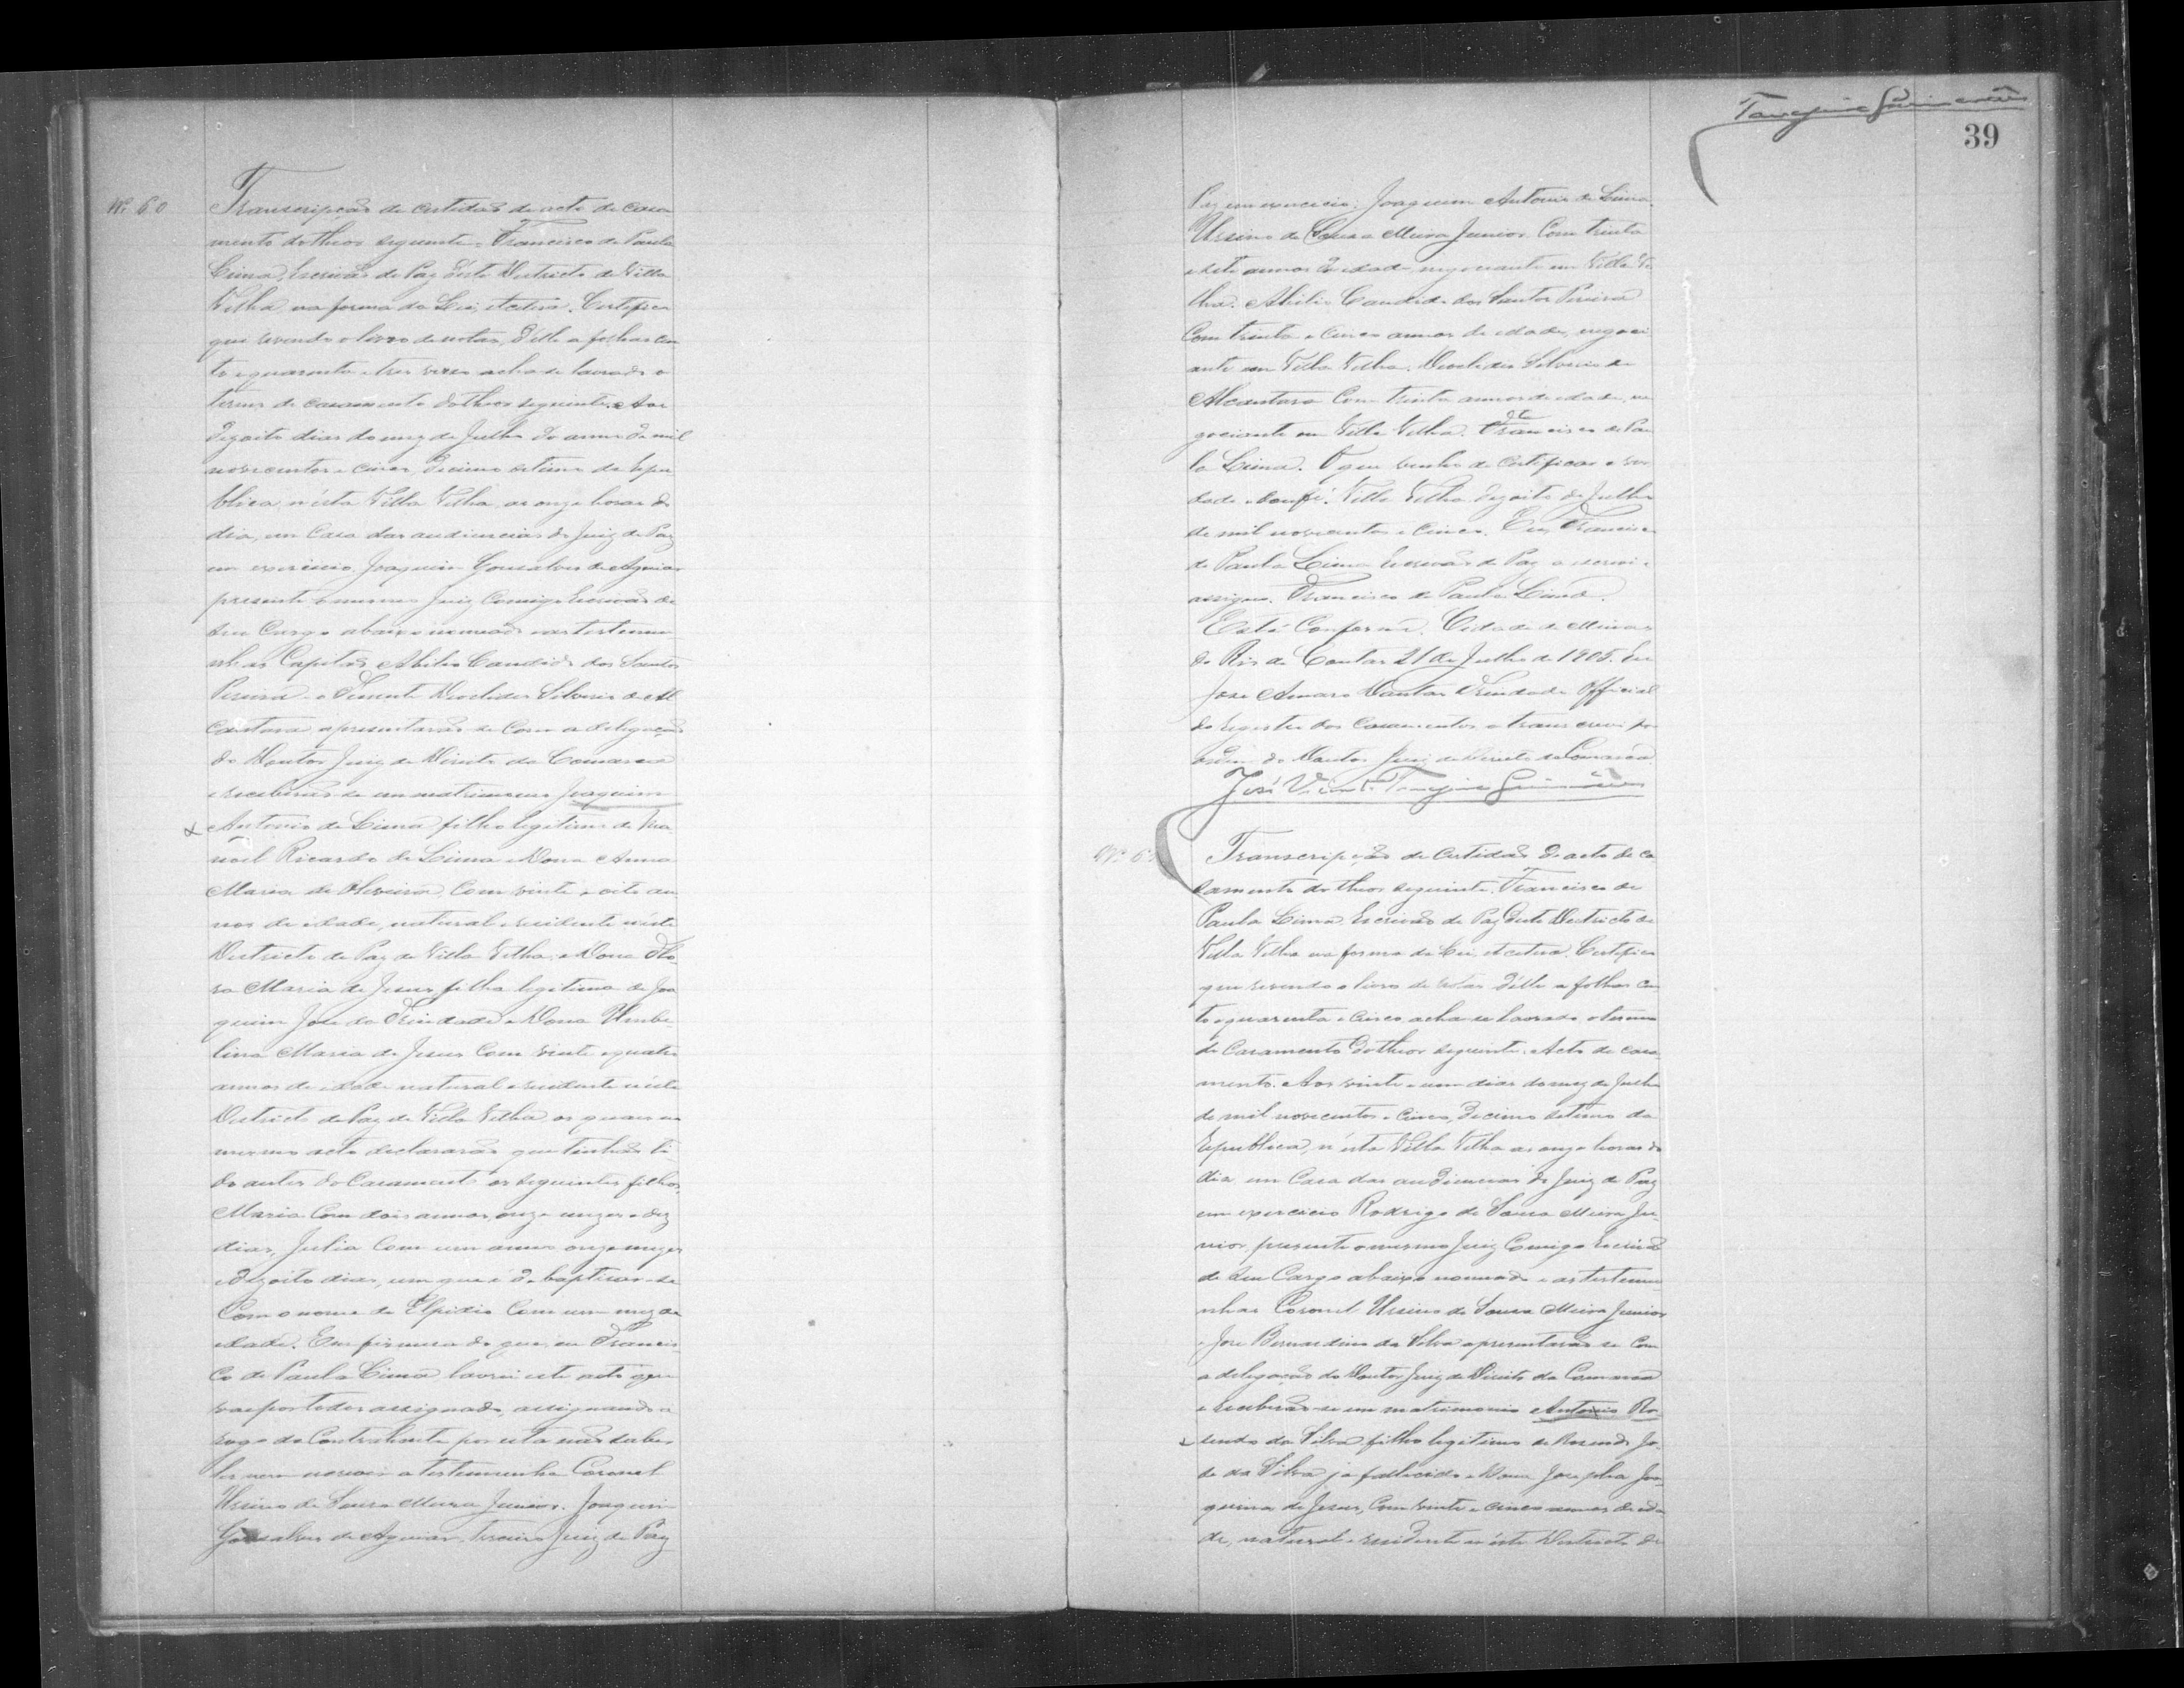 Nº 60
Transcripção de certidão de acto de casa
mento do theor seguinte. Francisco de Paula
Lima, Escrivão de Paz deste Districto de Villa
Velha na forma da Lei, etcetera. Certifico
que revendo o livro de notas, d'elle a folhas cen
to e quarenta e tres verso acha-se lavrado o
termo de casamento do theor seguinte. Aos
dezoito dias do mez de Julho do anno de mil
novecentos e cinco, decimo setimo da Repu
blica, n'esta Villa Velha, as onze horas do
dia, em Casa das audiencias do Juiz de Paz
em exercicio Joaquim Gonsalves de Aguiar
presente o mesmo Juiz Comigo Escrivão de
seu Cargo abaixo nomeado e as testemu
nhas Capitão Abilio Candido dos Santos
Pereira e Tenente Deoclides Silverio de Al
cantara apresentarão se com a delegação
do Doutor Juiz de Direito da Comarca
e receberão-se em matrimonio Joaquim
Antonio de Lima filho legitimo de Ma
noel Ricardo de Lima e Dona Anna
Maria de Oliveira, com vinte e oito an
nos de idade, natural e residente n'este
Districto de Paz de Villa Velha, e Dona Flo
ra Maria de Jesus, filha legitima de Joa
quim José da Trindade e Dona Umbe
lina Maria de Jesus com vinte e quatro
annos de idade natural e residente n'este
Districto de Paz de Villa Velha, os quaes no
mesmo acto declararão que tinhão ti
do antes do Casamento os seguintes filhos,
Maria Com dois annos, onze mezes e dez
dias, Julia Com um anno onze mezes
e dezoito dias, um que é de baptisar-se
Com o nome de Elpidio Com um mez de
idade. Em firmeza do que, eu Francis
co de Paula Lima, lavrei este acto que
vae por todos assignado, assignando a
rogo da Contrahente por esta não saber
ler nem escrever a testemunha Coronel
Ursino de Sousa Meira Junior. Joaquim
Gonsalves de Aguiar, terceiro Juiz de Paz
39
Paz em exercicio. Joaquim Antonio de Lima.
Ursino de Sousa Meira Junior Com trinta
e sete annos de idade, negociante em Villa Ve
lha. Abilio Candido dos Santos Pereira
Com trinta e cinco annos de idade, negoci
ante em Villa Velha. Deoclides Silverio de
Alcantara Com trinta annos de idade, ne
gociante em Villa Velha. Francisco de Pau
la Lima. O que venho de Certificar é ver
dade e dou fé. Villa Velha dezoito de Julho
de mil novecentos e cinco. Eu, Francisco
de Paula Lima Escrivão de Paz o escrevi e
assigno. Francisco de Paula Lima.
Está Conforme. Cidade de Minas
do Rio de Contas 21 de Julho de 1905. Eu
José Amaro Dantas Trindade Official
do Registro dos Casamentos o transcrevi por
ordem do Doutor Juiz de Direito da Comarca
José Vicente Guimarães
Nº 6
Transcripção de Certidão de acto de ca
samento do theor seguinte. Francisco de
Paula Lima, Escrivão de Paz deste Districto de
Villa Velha na forma da Lei, etcetera. Certifico
que revendo o livro de notas d'elle a folhas cen
to e quarenta e cinco acha-se lavrado o termo
de Casamento do theor seguinte. Acto de casa
mento. Aos vinte e um dias do mez de Julho
de mil novecentos e cinco, decimo setimo da
Republica, n'esta Villa Velha as onze horas do
dia em Casa das audiencias do Juiz de Paz
em exercicio Rodrigo de Sousa Meira Ju
nior, presente o mesmo Juiz Comigo Escrivão
de seu Cargo abaixo nomeado e as testemu
nhas Coronel Ursino de Sousa Meira Junior
e José Bernardino da Silva apresentarão se Com
a delegação do Doutor Juiz de Direito da Comarca
e receberão-se em matrimonio Antonio Ro
sendo da Silva filho legitimo de Rosendo Jo
sé da Silva já fallecido e Dona Josepha Joa
quina de Jesus, Com vinte e cinco annos de ida
de, natural e residente n'este Districto de